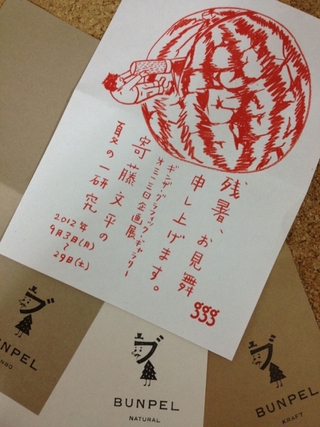 残暑、お見舞
申し上げます。
ggg
ギンザ・グラフィック・ギャラリー
第三一三回企画展
寄藤文平の
夏の一研究
2012年
9月3日(月)
〜
29日(土)
ブ
UNPEL
ブ
BUNPEL
NATURAL
ブ
BUNPEL
KRAFT